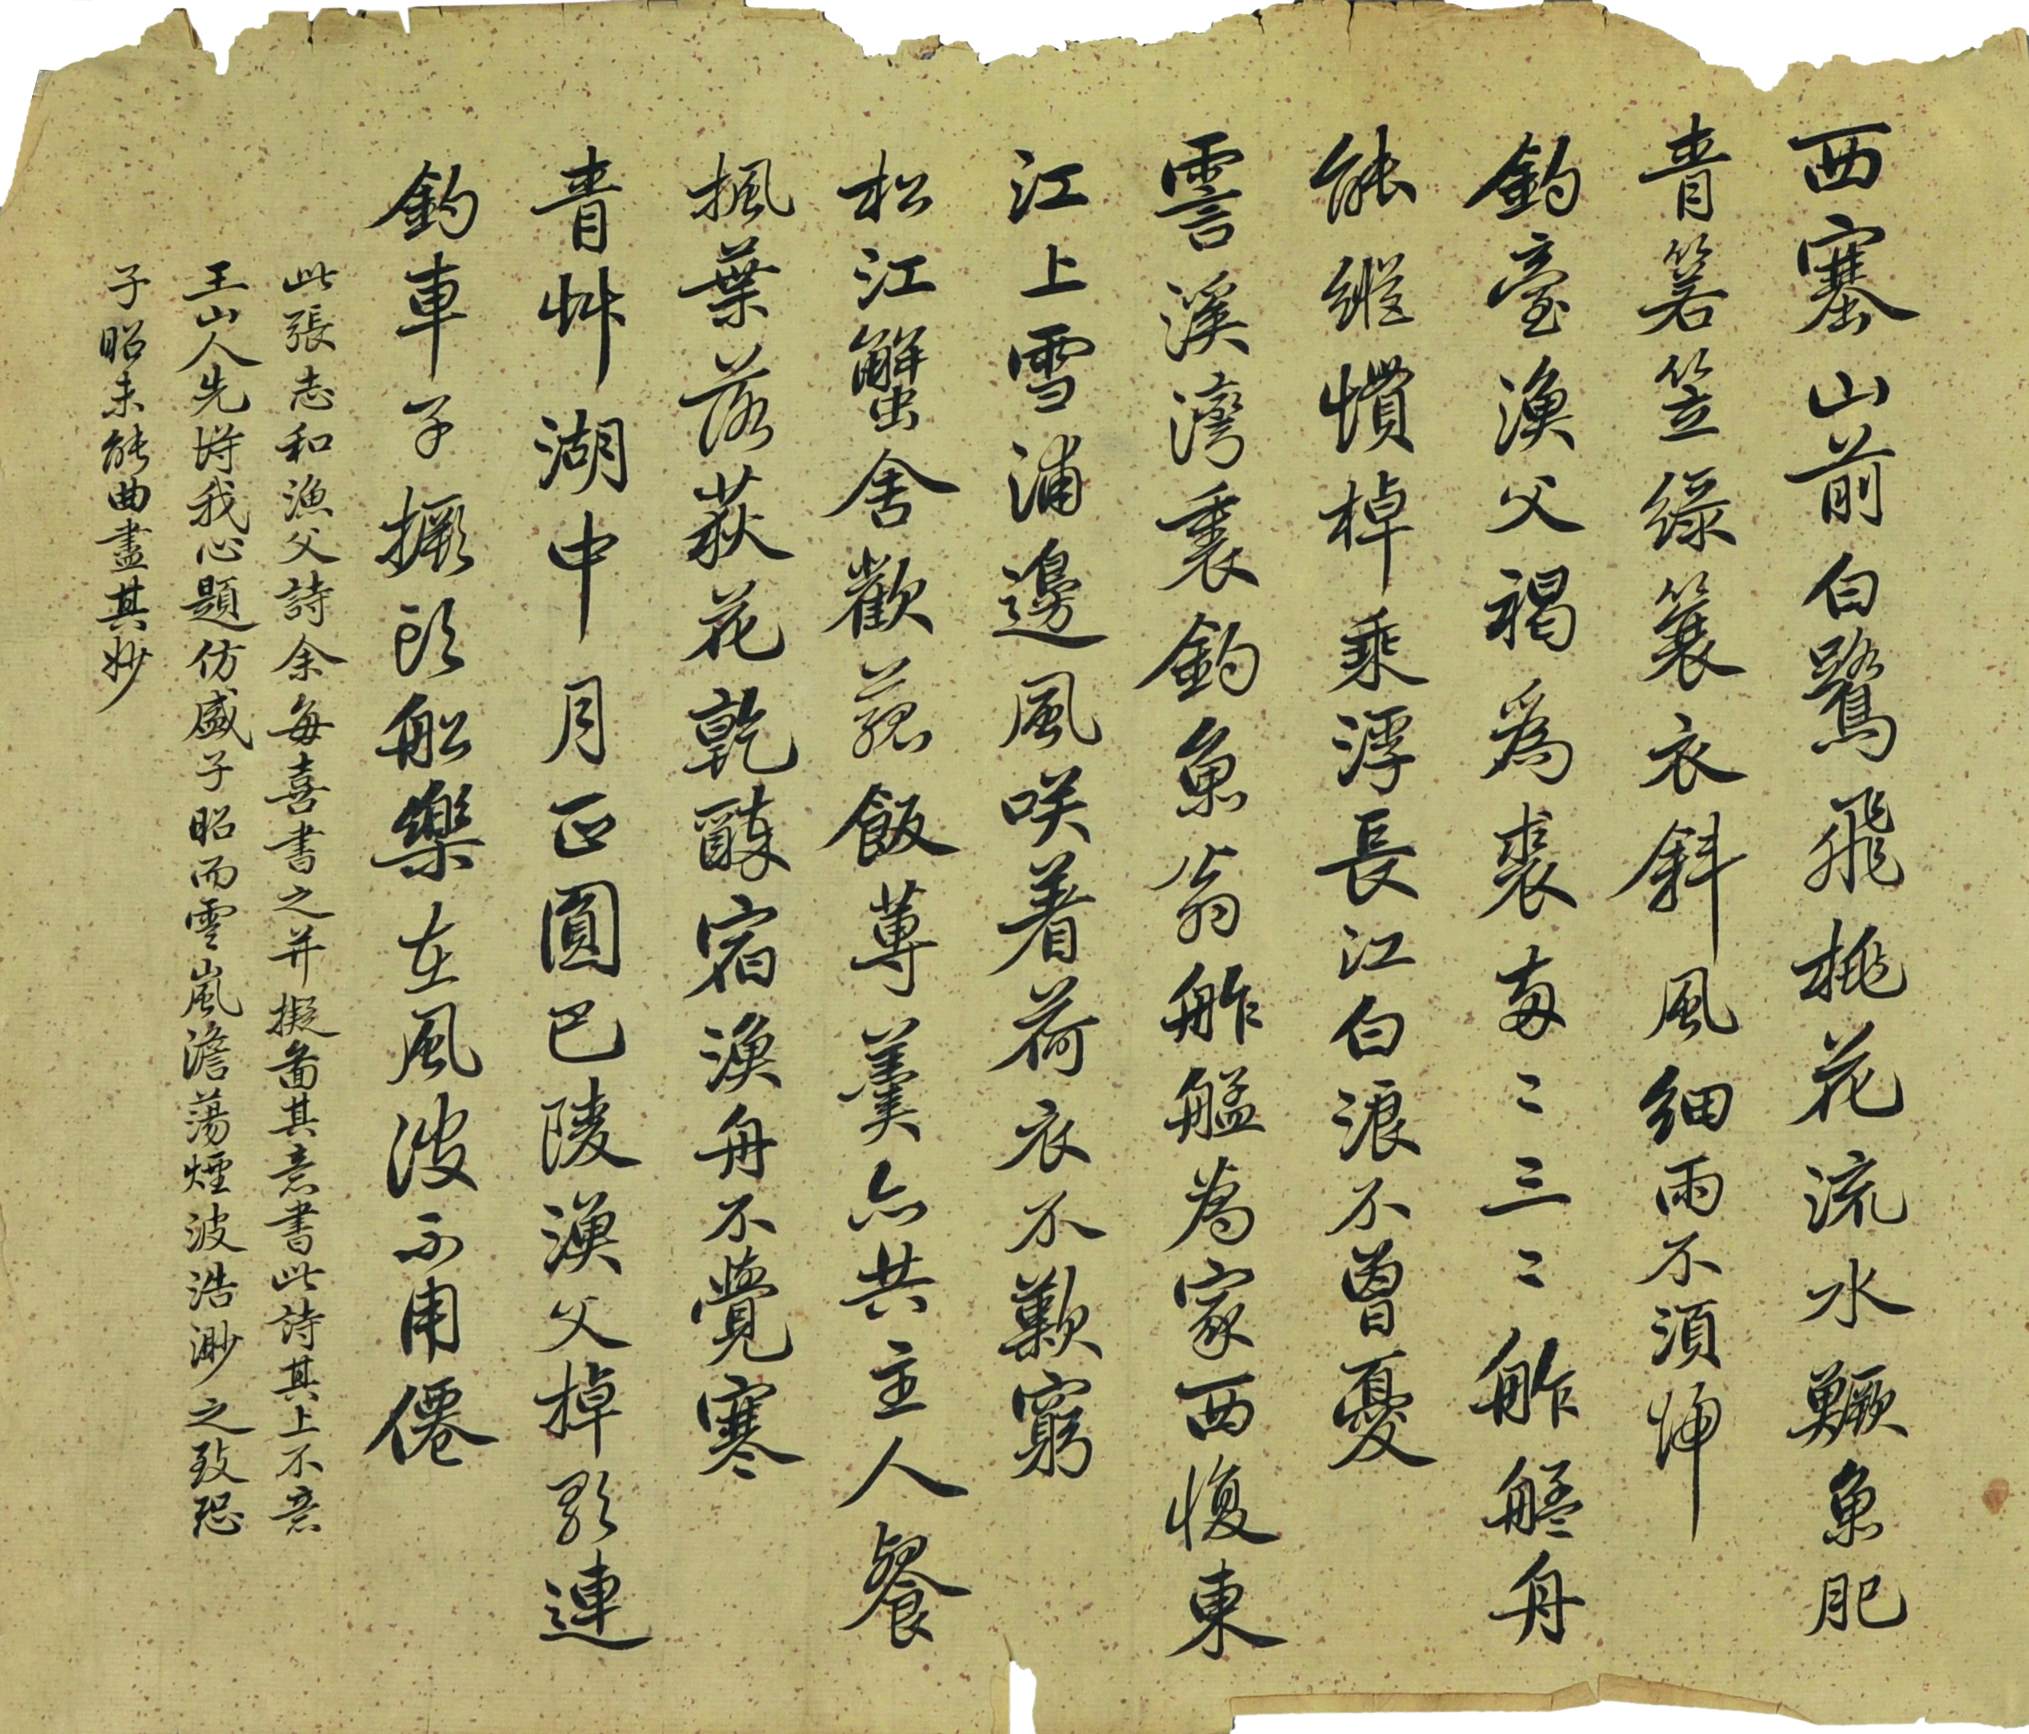 西塞山前白鷺飛桃花流水鱖魚肥
青箬笠綠簑衣斜風細雨不須歸
釣臺漁父褐爲裘兩〻三〻舴艋舟
能縱慣棹乘浮長江白浪不曾憂
霅溪灣裏釣魚翁舴艋為家西復東
江上雪浦邊風咲着荷衣不歎窮
松江蟹舍歡菰飯蓴羹亦共主人餐
楓葉落荻花乾醉宿漁舟不覺寒
青艸湖中月正圓巴陵漁父棹歌連
釣車子撅頭船樂在風波不用僊
此張志和漁父詩余每喜書之并擬啚其意書此詩其上不意
王山人先得我心題仿盛子昭而雲嵐澹蕩煙波浩渺之致恐
子昭未能曲盡其妙